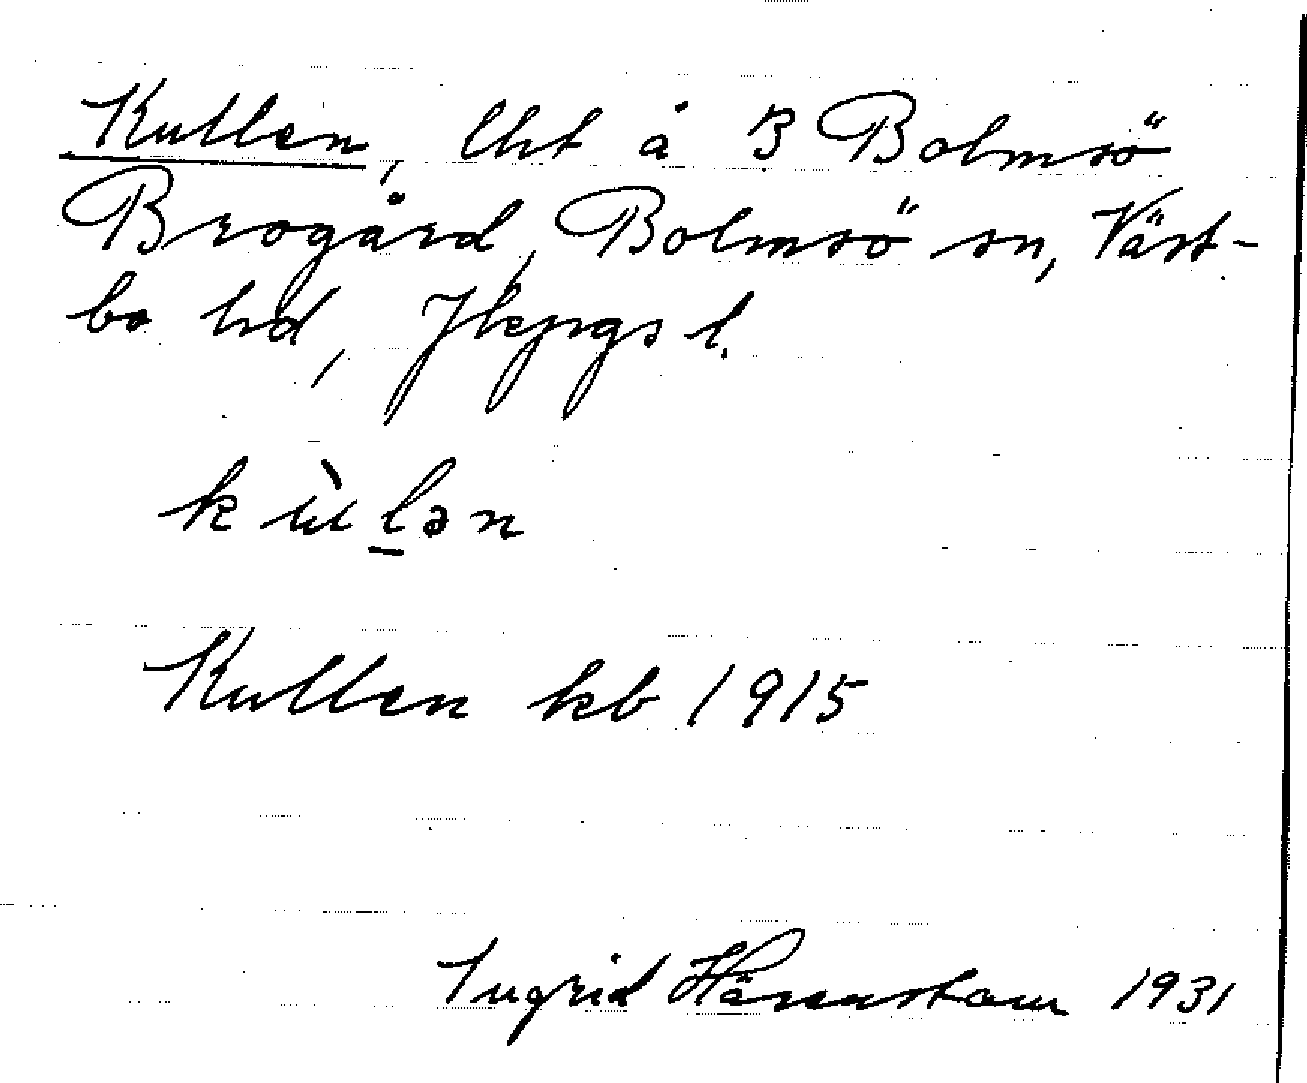 Kullen, lht å B Bolmsö
Brogård, Bolmsö sn, Väst-
bo hd, Jkpgs l.
kùlən
Kullen kb 1915
Ingrid Härenstam 1931